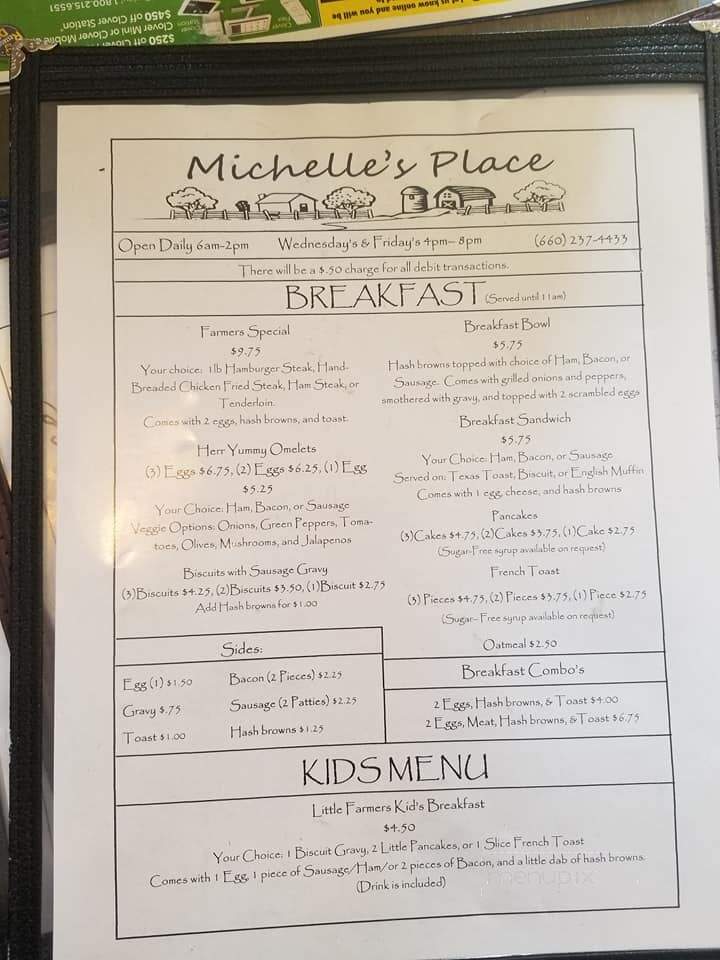 1.800.215.6551
$450 off Clover Station
Clover Mini or Clover Mobile
$250 off Clover
us know online and you will be
Michelle's Place
Open Daily 6am-2pm Wednesday's & Friday's 4pm- 8pm (660) 237-4433
There will be a $.50 charge for all debit transactions.
BREAKFAST (Served until 11am)
Farmers Special
$9.75
Your choice: 1lb Hamburger Steak, Hand-
Breaded Chicken Fried Steak, Ham Steak, or
Tenderloin.
Comes with 2 eggs, hash browns, and toast.
Herr Yummy Omelets
(3) Eggs $6.75, (2) Eggs $6.25, (1) Egg
$5.25
Your Choice: Ham, Bacon, or Sausage
Veggie Options: Onions, Green Peppers, Toma-
toes, Olives, Mushrooms, and Jalapenos
Biscuits with Sausage Gravy
(3)Biscuits $4.25, (2)Biscuits $3.50, (1)Biscuit $2.75
Add Hash browns for $1.00
Breakfast Bowl
$5.75
Hash browns topped with choice of Ham, Bacon, or
Sausage. Comes with grilled onions and peppers,
smothered with gravy, and topped with 2 scrambled eggs
Breakfast Sandwich
$5.75
Your Choice: Ham, Bacon, or Sausage
Served on: Texas Toast, Biscuit, or English Muffin
Comes with 1 egg, cheese, and hash browns
Pancakes
(3)Cakes $4.75, (2)Cakes $3.75, (1)Cake $2.75
(Sugar-Free syrup available on request)
French Toast
(3) Pieces $4.75, (2) Pieces $3.75, (1) Piece $2.75
(Sugar- Free syrup available on request)
Oatmeal $2.50
Sides:
Egg (1) $1.50 Bacon (2 Pieces) $2.25
Gravy $.75 Sausage (2 Patties) $2.25
Toast $1.00 Hash browns $1.25
Breakfast Combo's
2 Eggs, Hash browns, & Toast $4.00
2 Eggs, Meat, Hash browns, & Toast $6.75
KIDS MENU
Little Farmers Kid's Breakfast
$4.50
Your Choice: 1 Biscuit Gravy, 2 Little Pancakes, or 1 Slice French Toast
Comes with 1 Egg, 1 piece of Sausage/Ham/or 2 pieces of Bacon, and a little dab of hash browns.
(Drink is included)
menupix